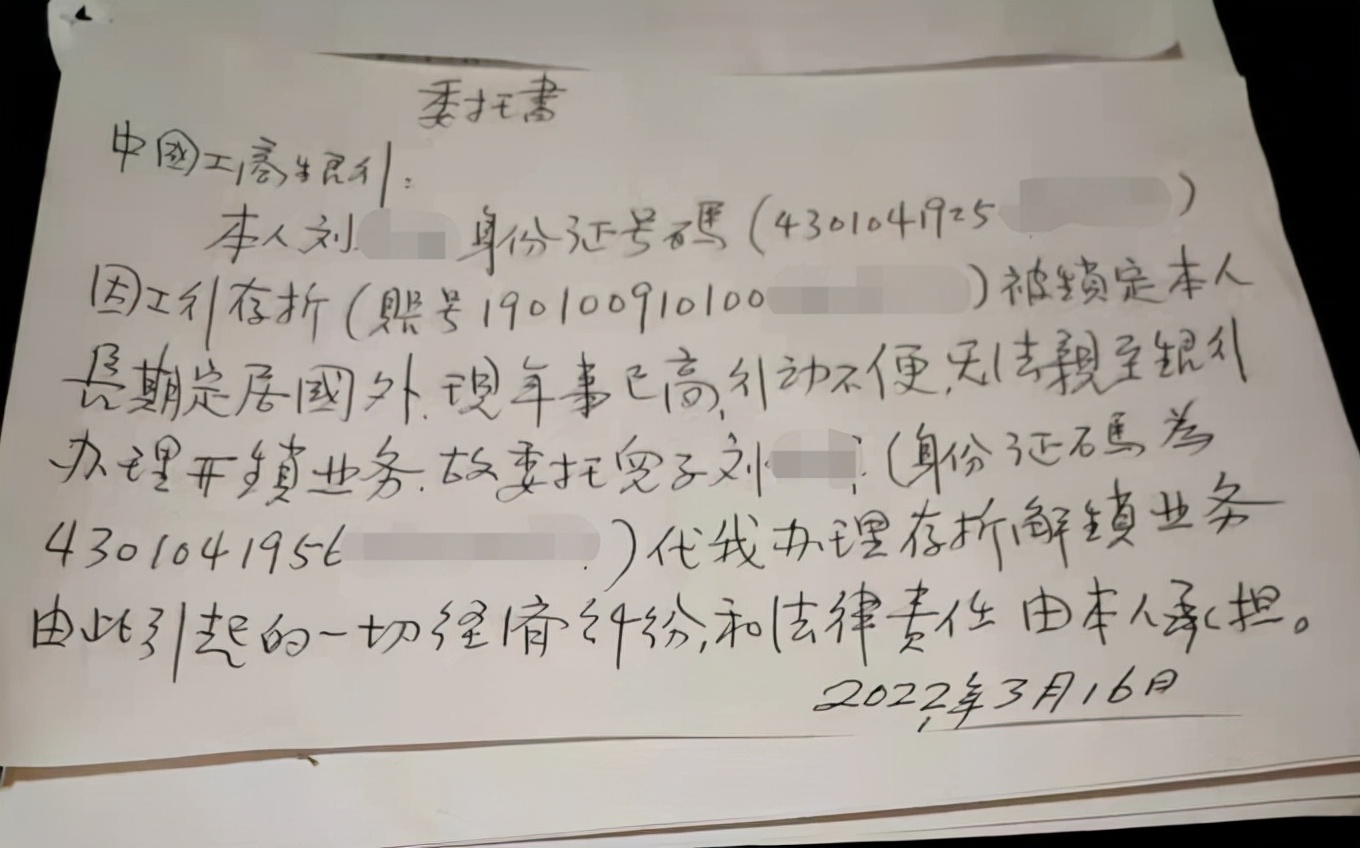 委托書
中國工商銀行：
本人刘 身份证号碼(4301041925 )
因工行存折(賬号190100910100 )被鎖定本人
長期定居國外.現年事已高,行动不便,无法親至銀行
办理开鎖业务.故委托兒子刘 (身份证碼為
4301041956 )代我办理存折解鎖业务
由此引起的一切経濟纠纷,和法律責任由本人承担。
2022年3月16日